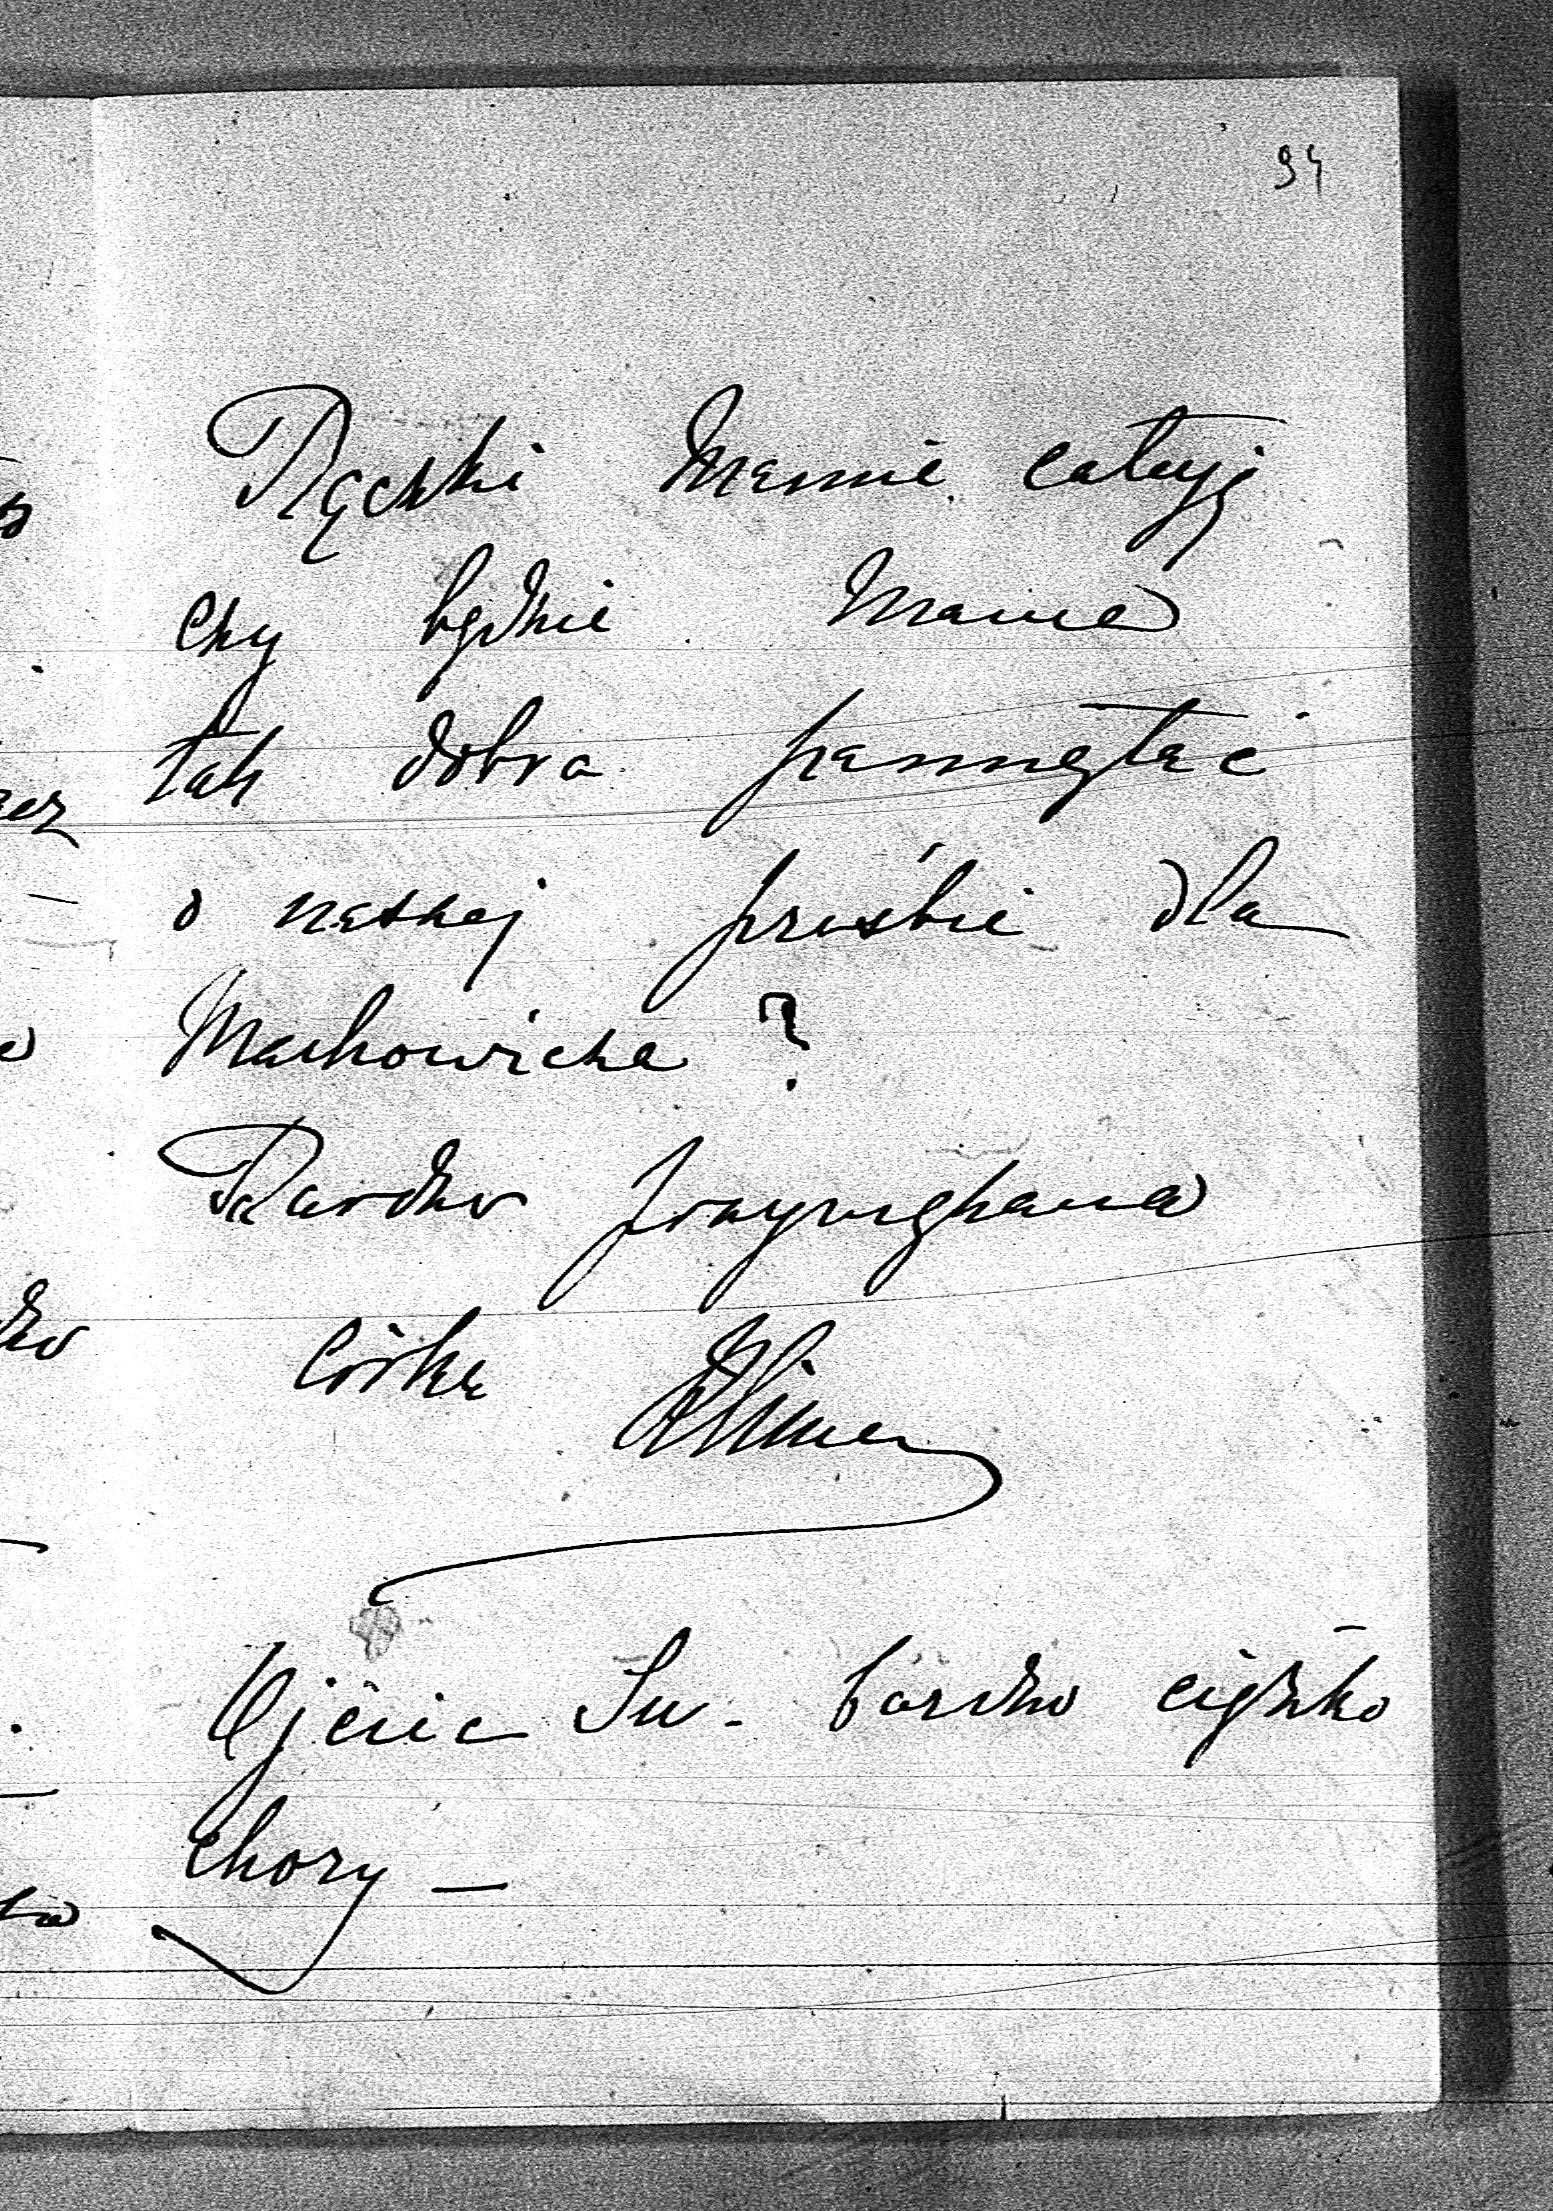 94
Rączki Mamie całuję
czy będzie Mama
tak dobra pamiętać
o naszej prośbie dla
Machowicza?
Bardzo przywiązana
córka
Ojciec Św. bardzo ciężko
chory —